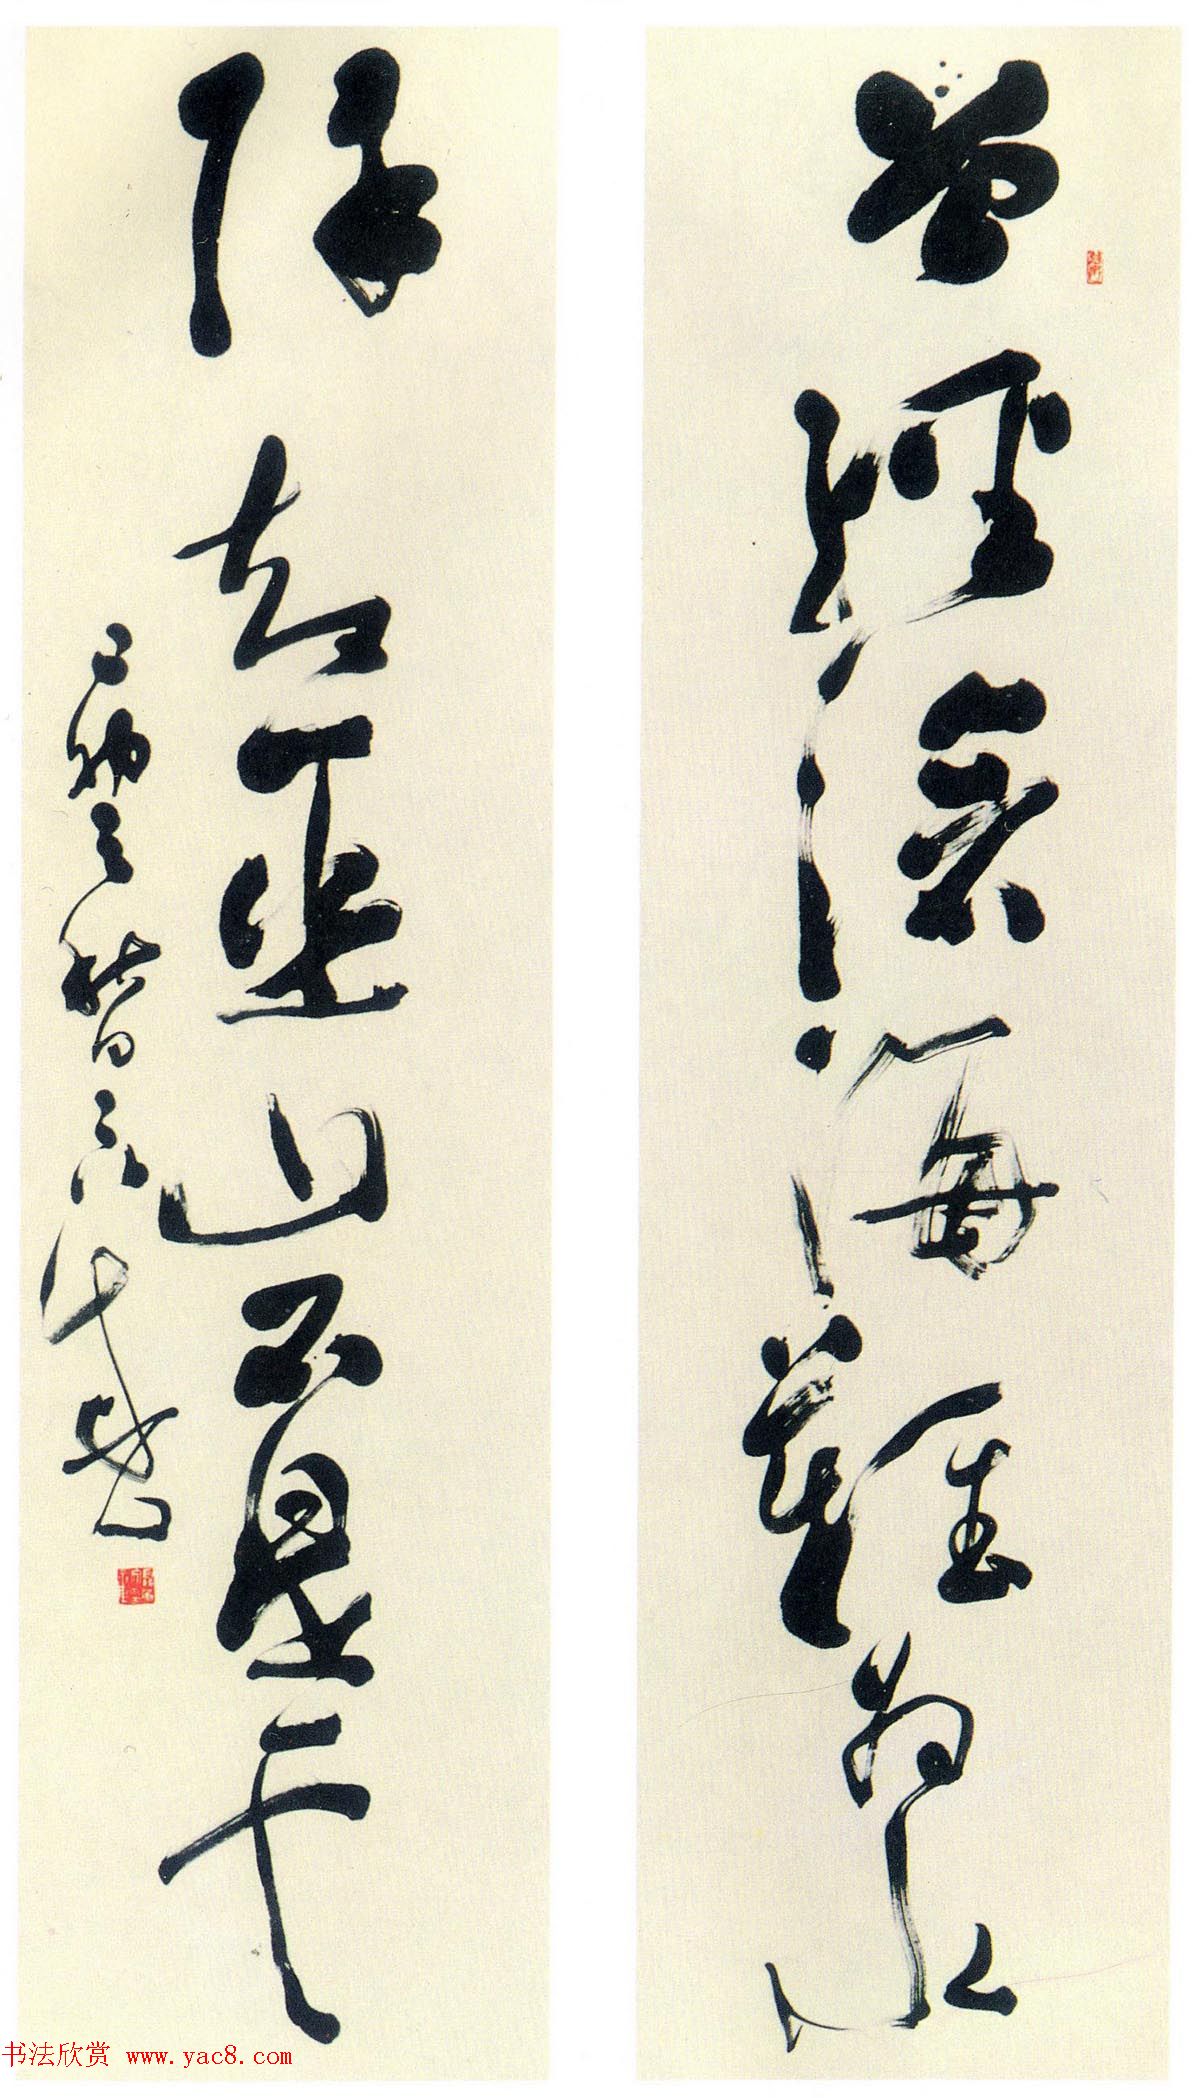 曾經滄海難為水
除却巫山不是雲
书法欣赏 www.yac8.com